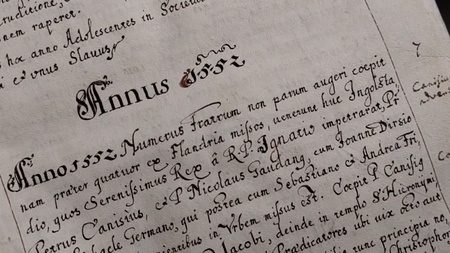 nem raperet.
hoc anno Adolescentes in Societa
ex unus Slavus.
Annus 1552
Anno 1552 Numerus Fratrum non parum augeri coepit
nam præter quatuor ex Flandria missos, venerunt huc Ingolsta
dio, quos Serenissimus Rex â R.P. Ignatio impetrarat, P.
Petrus Canisius, et P. Nicolaus Gaudang, cum Joanne Dirsio
Michaele Germano, qui postea cum Sebastiano et Andrea Fri,
in Urbem missus est. Coepit P. Canisig
Jacobi, deinde in templo S. Hieronymi,
Prædicatores ubi vix octo aut
runc principia no,
Christophor
7
Canisiu